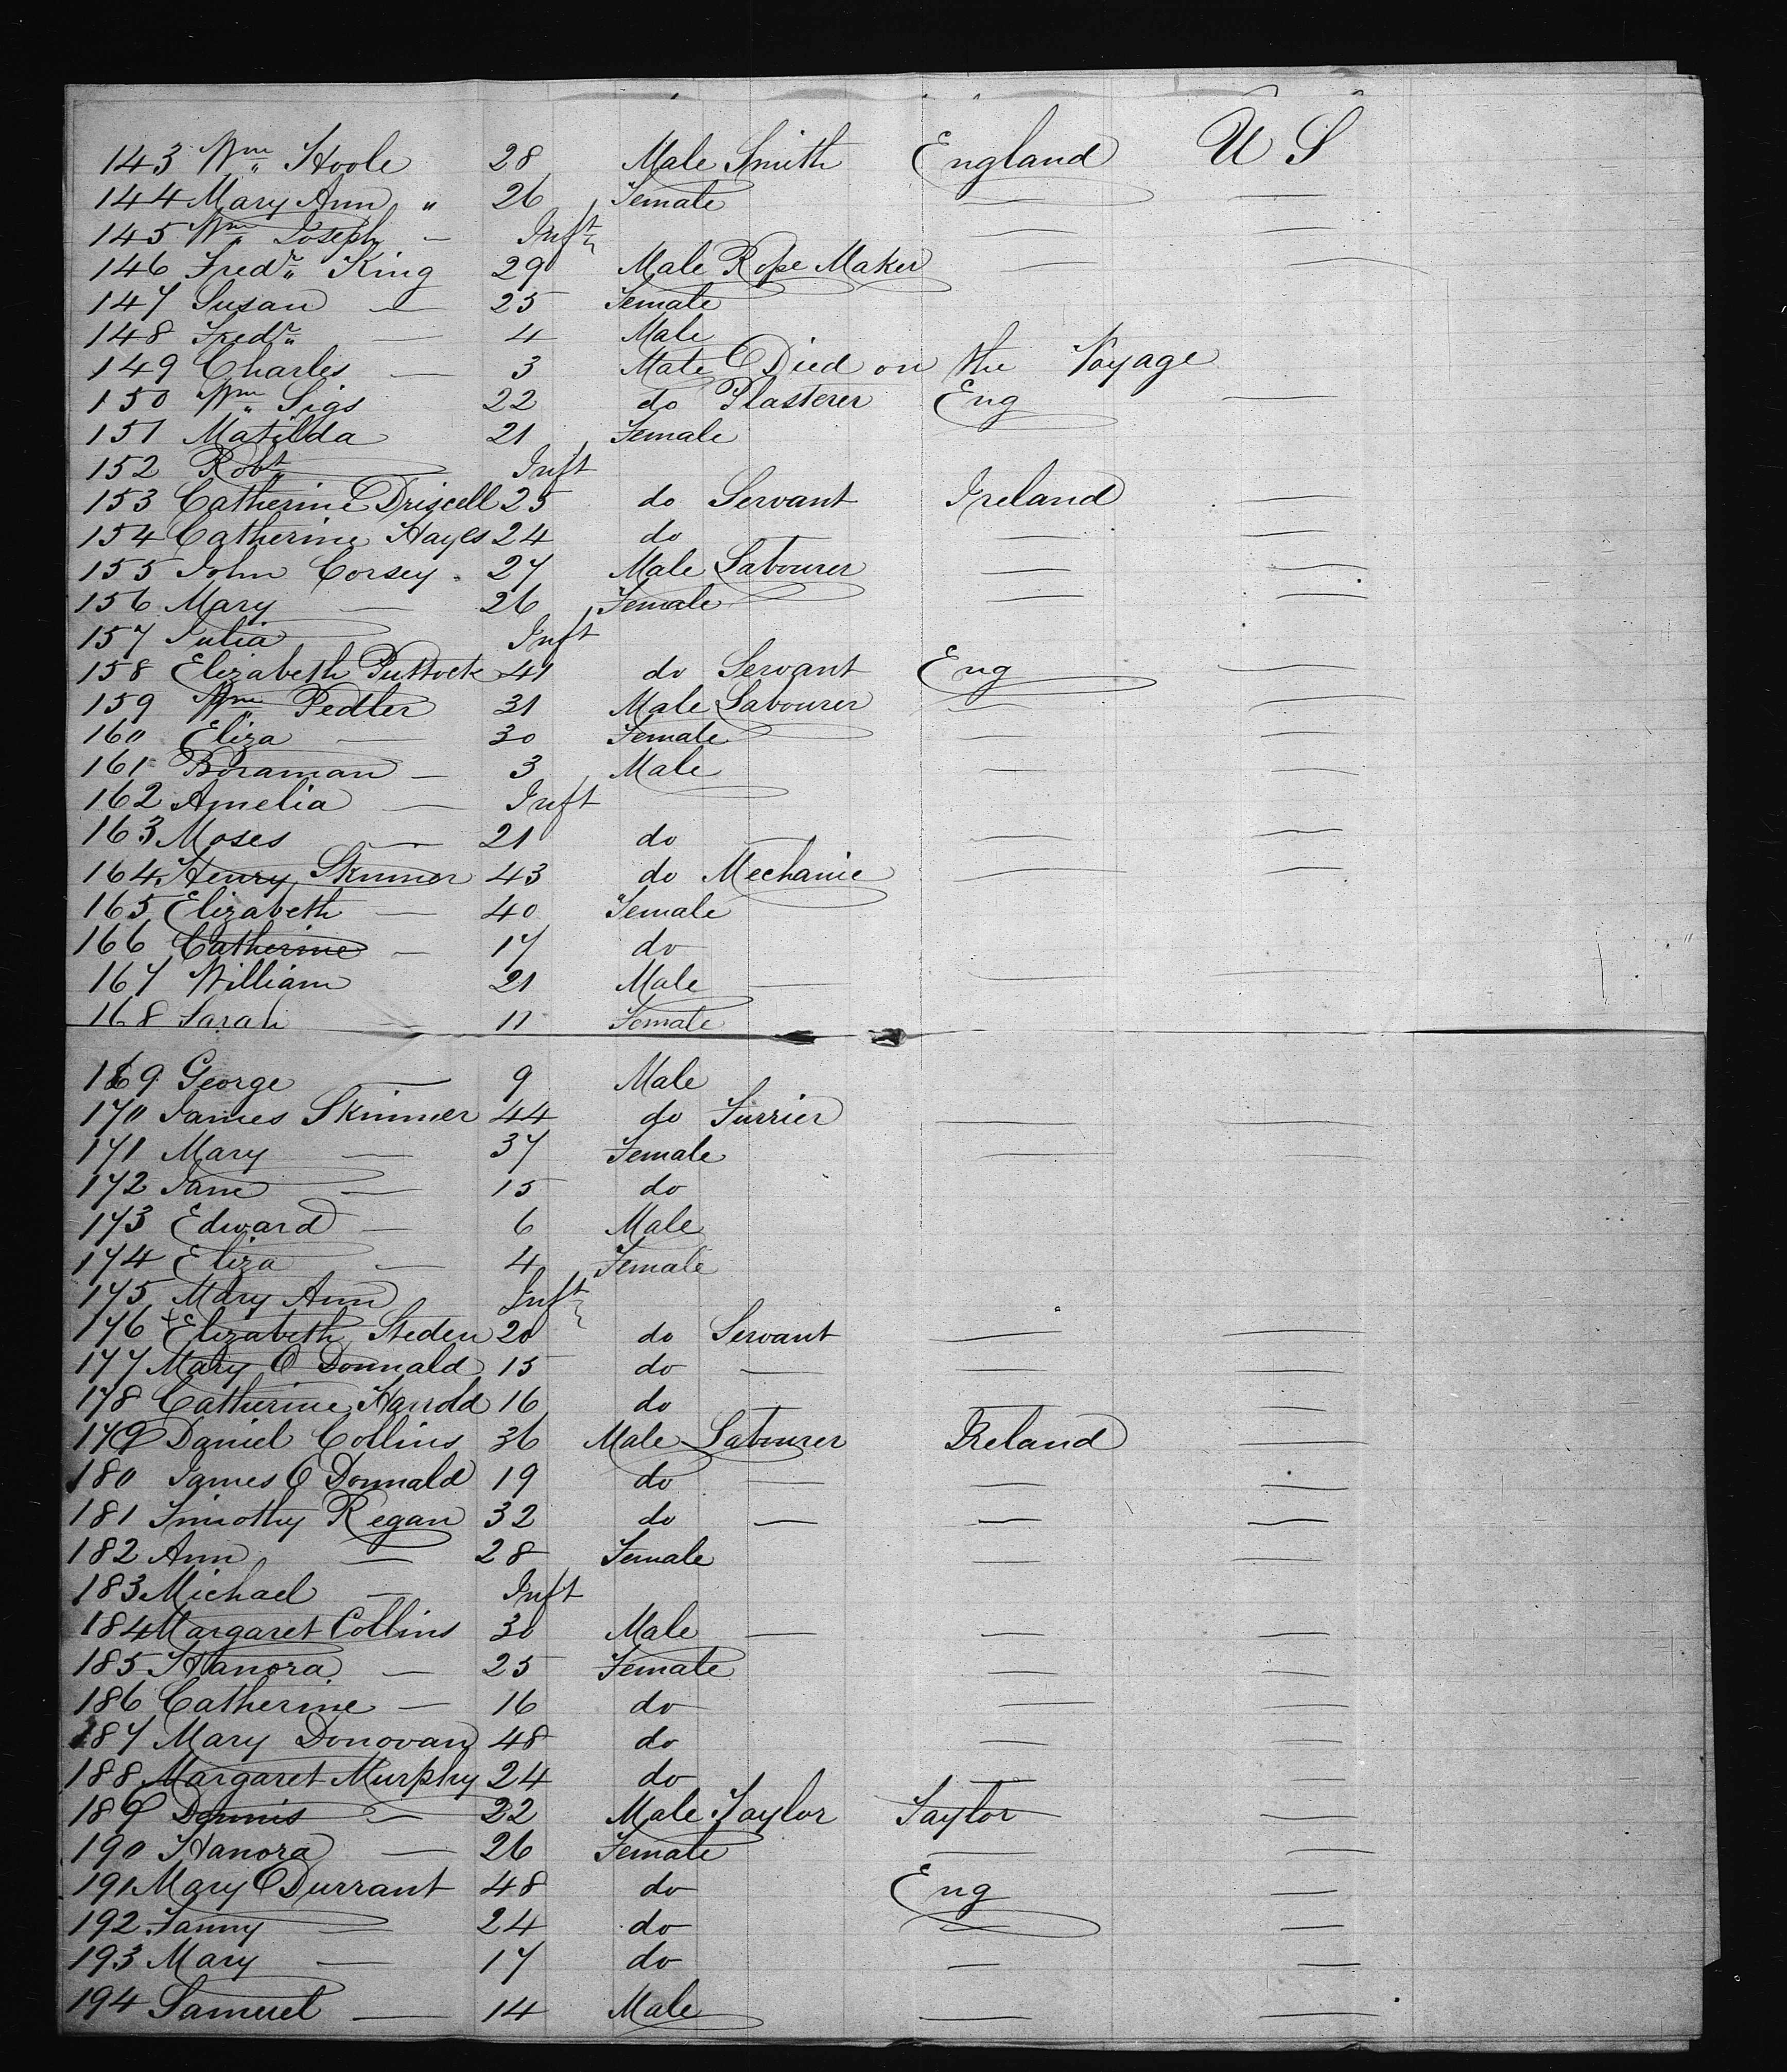 143 Wm Hoole 28 Male Smith England U S
144 Mary Ann " 26 Female — —
145 Wm Joseph — Inft — —
146 Fredk King 29 Male Rope Maker — —
147 Susan — 25 Female
148 Fredk — 4 Male
149 Charles — 3 Male Died on the Voyage
150 Wm Sigs 22 do Plasterer Eng —
151 Matilda 21 Female
152 Robt Inft
153 Catherine Driscell 25 do Servant Ireland —
154 Catherine Hayes 24 do — — —
155 John Corsey 27 Male Labourer — —
156 Mary — 26 Female — —
157 Julia Inft
158 Elizabeth Puttock 41 do Servant Eng —
159 Wm Pedler 31 Male Labourer — —
160 Eliza — 30 Female — —
161 Boraman — 3 Male — —
162 Amelia — Inft
163 Moses — 21 do — — —
164 Henry Skinner 43 do Mechanic — —
165 Elizabeth — 40 Female
166 Catherine — 17 do
167 William 21 Male — —
168 Sarah — 11 Female
169 George — 9 Male
170 James Skinner 44 do Furrier — —
171 Mary — 37 Female —
172 Jane — 15 do
173 Edward — 6 Male
174 Eliza — 4 Female
175 Mary Ann Inft
176 + Elizabeth Steden 20 do Servant — —
177 Mary O Donnald 15 do — — —
178 Catherine Harrold 16 do — — —
179 Daniel Collins 36 Male Labourer Ireland —
180 James O Donnald 19 do — — —
181 Timothy Regan 32 do — — —
182 Ann — 28 Female — —
183 Michael — Inft
184 Margaret Collins 30 Male — — —
185 Hanora — 25 Female — —
186 Catherine — 16 do — —
187 Mary Donovan 48 do — —
188 Margaret Murphy 24 do — —
189 Dennis — 22 Male Taylor Taylor —
190 Hanora — 26 Female — —
191 Mary Durrant 48 do Eng —
192 Fanny — 24 do — —
193 Mary — 17 do — —
194 Samuel — 14 Male — —